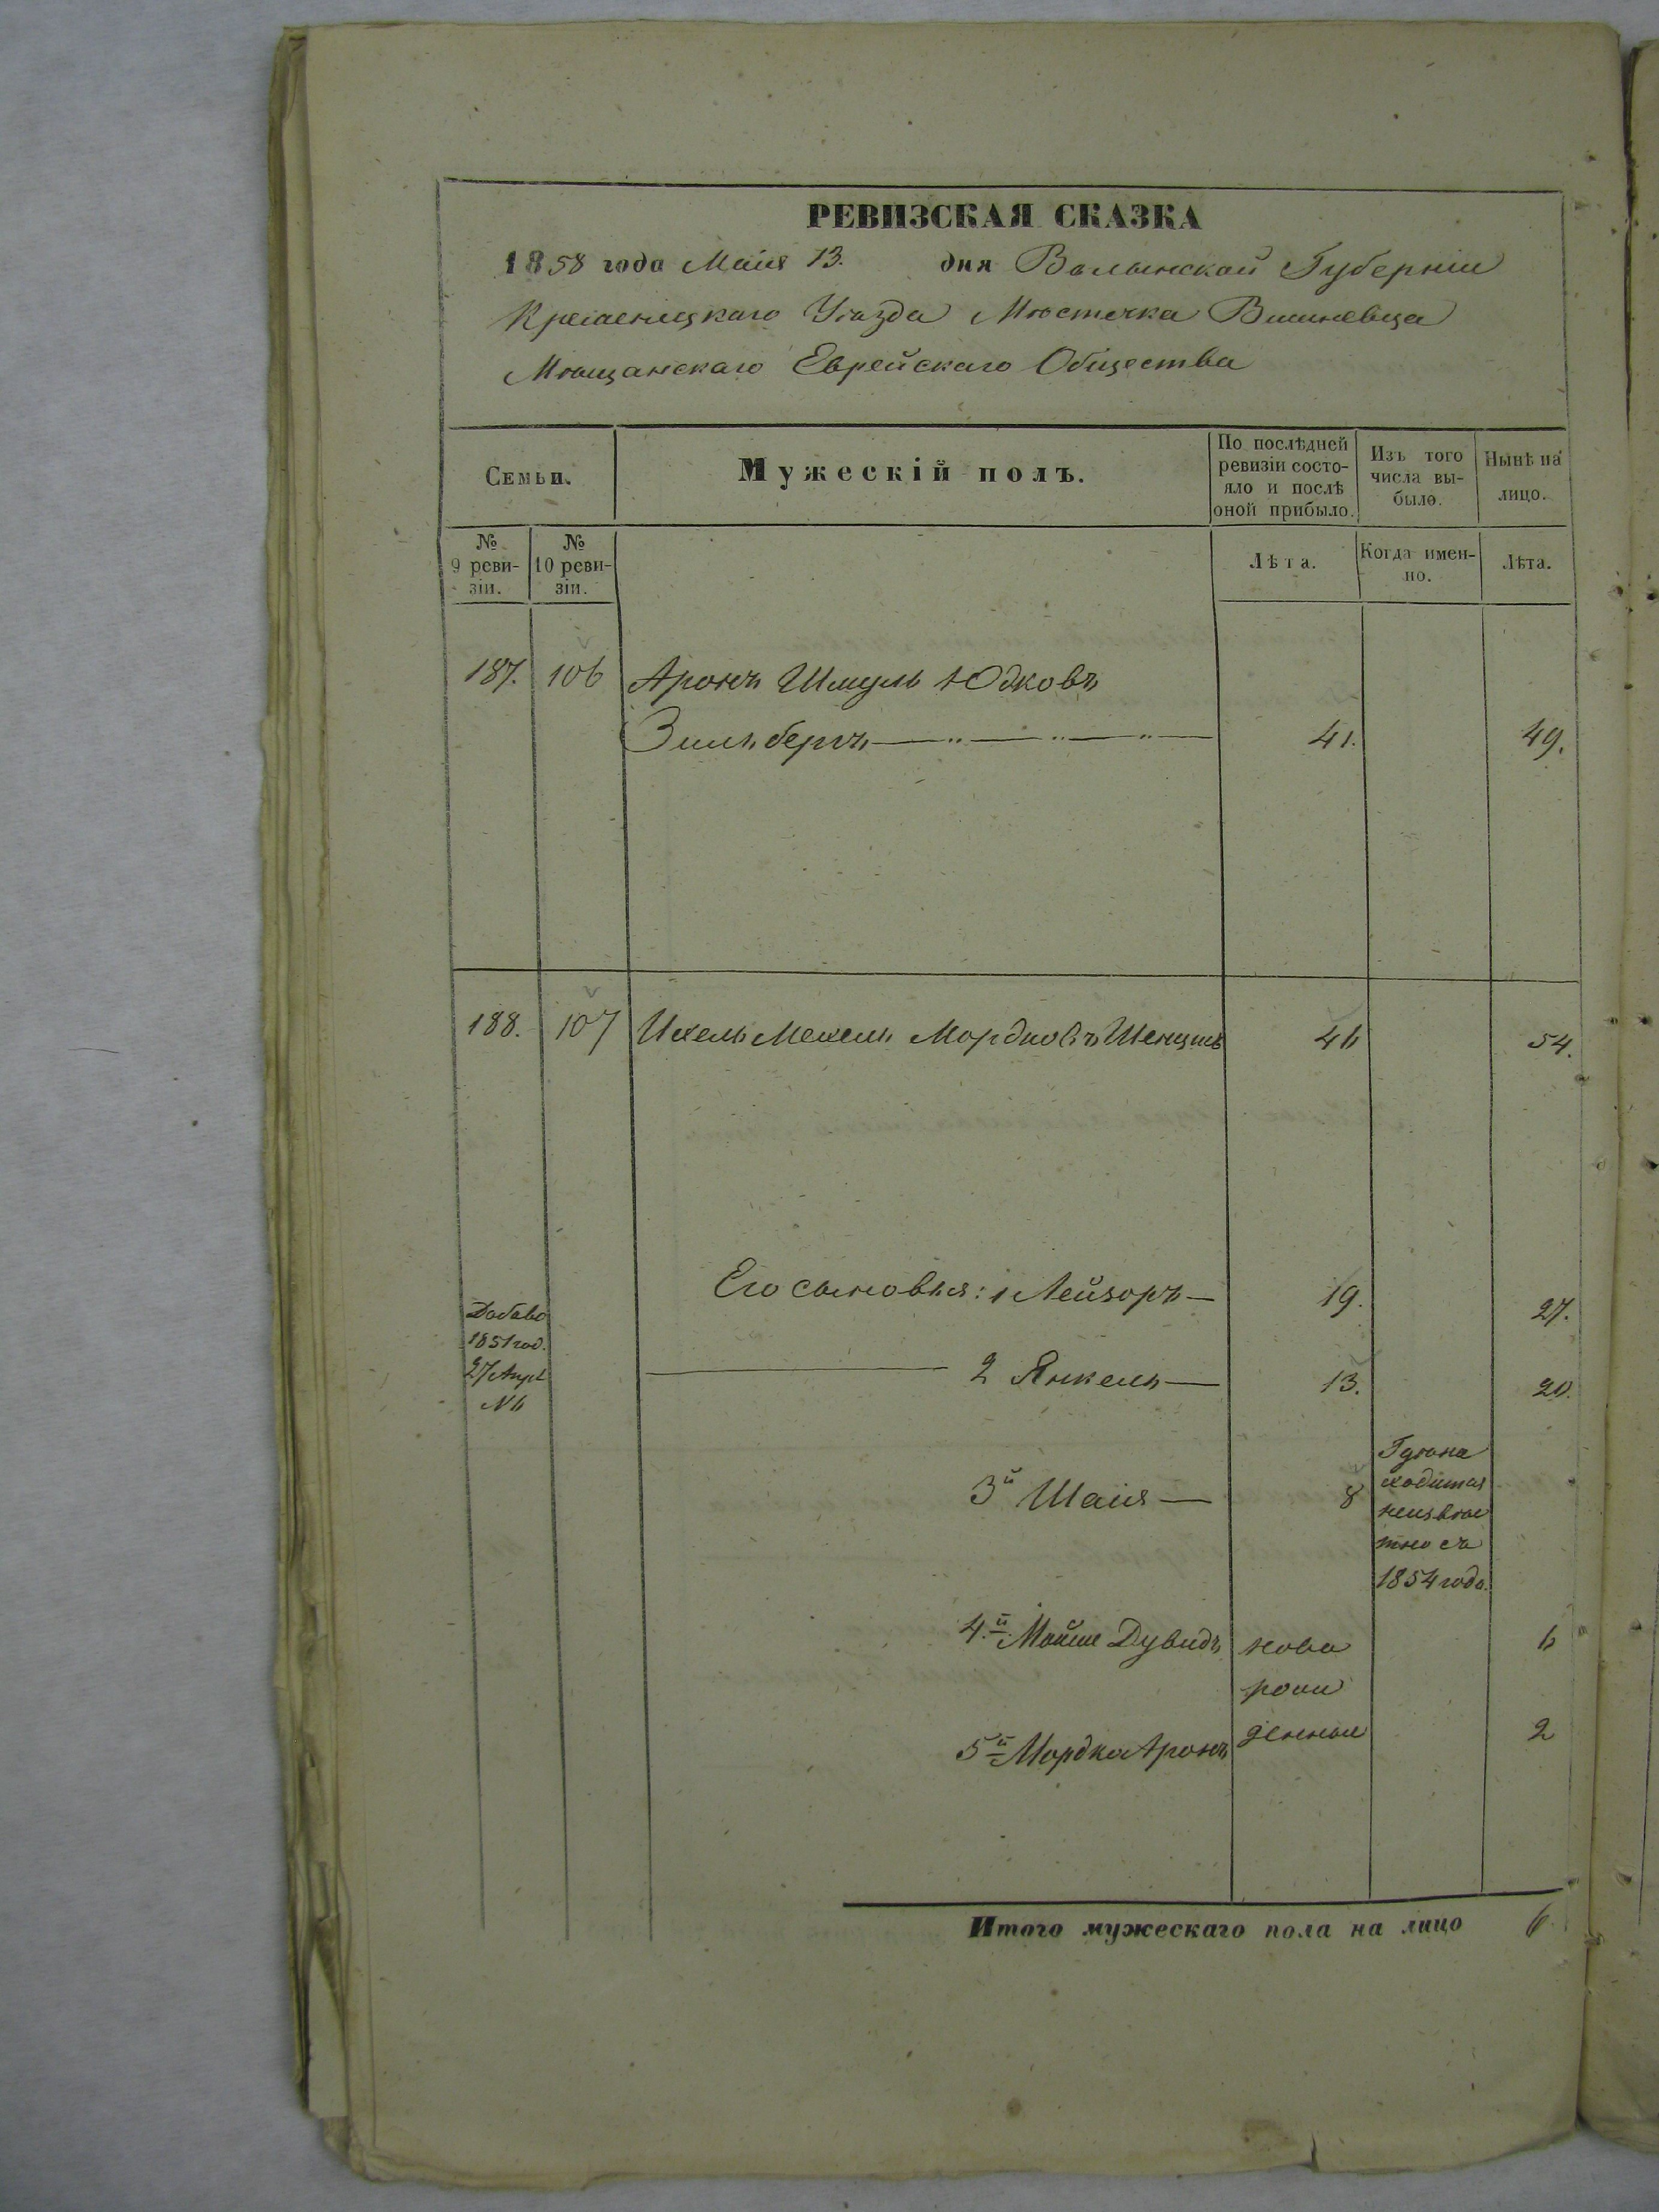 РЕВИЗСКАЯ СКАЗКА
1858 года Маія 13. дня Волынской Губерніи
Кременецкаго Уѣзда Мѣстечка Вишневца
Мѣщанскаго Еврейскаго Общества
Семьи.
Мужескій полъ.
По послѣдней
ревизіи состо-
яло и послѣ
оной прибыло.
Изъ того
числа вы-
было.
Нынѣ на
лицо.
№
9 реви-
зіи.
№
10 реви-
зіи.
Лѣта.
Когда имен-
но.
Лѣта.
187. 106 Аронъ Шмуль Юдковъ
Зильберъ 41. 49.
188. 107 Ихель Мехель Мордковъ 46 54.
Его сыновья: 1 Лейзоръ 19. 27.
Добаво
1851 год.
27 Апрл
№ 6
2 Янкель 13. 20.
3й Шаія 8
Гдѣ на
ходится
неизвѣс
тно съ
1854 года.
4.й Мойше Дувидъ ново 6
рож
5й Мордко Аронъ денные 2
Итого мужескаго пола на лицо 6.